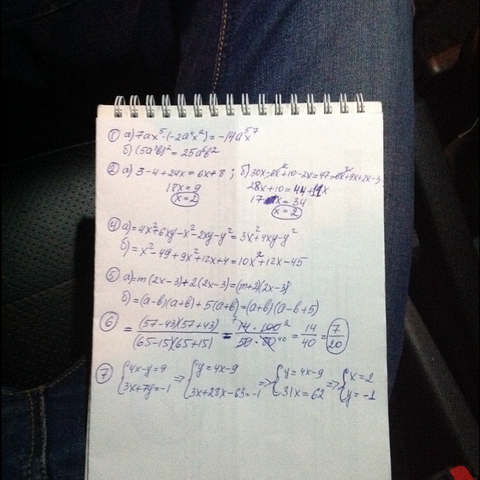 ① а) 7ax⁵·(-2a⁴x²) = -14a⁵x⁷
б) (5a²b)² = 25a⁴b²
② а) 3-4+24x = 6x+8 ; б) 30x-6x²+10-2x = 47-6x²+9x+2x-3
18x = 9 28x+10 = 44+11x
x=2 17x = 34
x = 2
④ а) = 4x²+6xy-x²-2xy-y² = 3x²+4xy-y²
б) = x²-49+9x²+12x+4 = 10x²+12x-45
⑤ а) = m(2x-3)+2(2x-3) = (m+2)(2x-3)
б) = (a-b)(a+b)+5(a+b) = (a+b)(a-b+5)
⑥ = (57-43)(57+43) / (65-15)(65+15) = 14·100 / 50·80 = 14/40 = 7/20
⑦ {4x-y=9 ⇒ {y=4x-9 ⇒ {y=4x-9 ⇒ {x=2
{3x+7y=-1 {3x+28x-63=-1 {31x=62 {y=-1